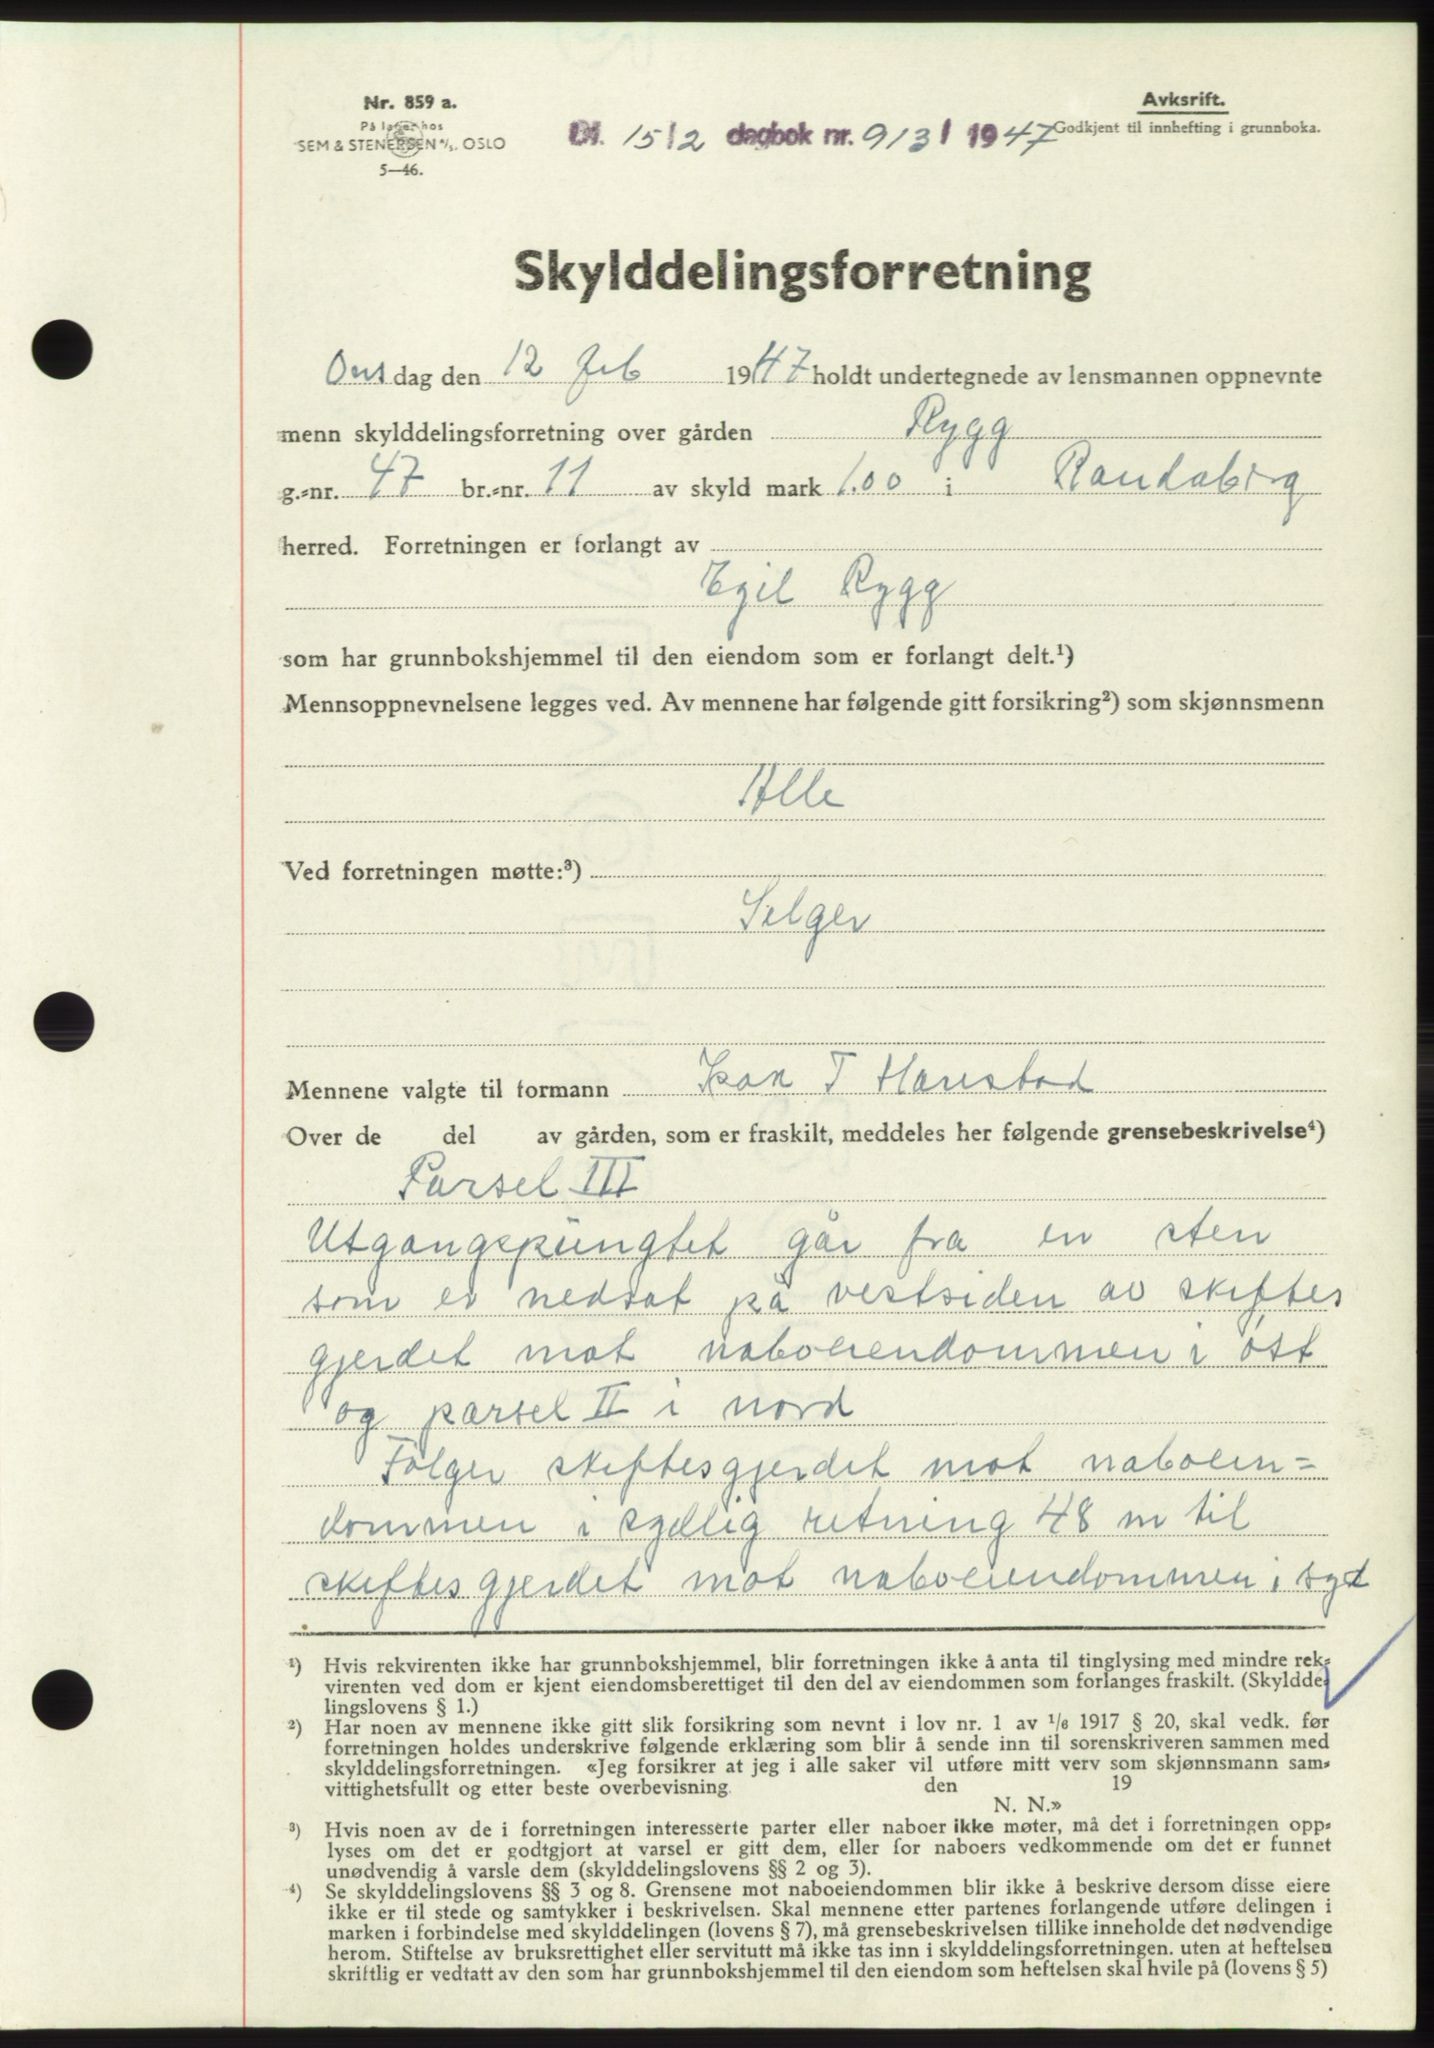 Nr. 859 a.
På lager hos
SEM & STENERSEN A/S. OSLO
5—46.
Dt. 15/2 dagbok nr. 913 / 1947
Avksrift.
Godkjent til innhefting i grunnboka.
Skylddelingsforretning
Onsdag den 12 feb 1947 holdt undertegnede av lensmannen oppnevnte
menn skylddelingsforretning over gården Rygg
g.-nr. 47 br.-nr. 11 av skyld mark 1.00 i Randaberg
herred. Forretningen er forlangt av
Egil Rygg
som har grunnbokshjemmel til den eiendom som er forlangt delt.¹)
Mennsoppnevnelsene legges ved. Av mennene har følgende gitt forsikring²) som skjønnsmenn
Alle
Ved forretningen møtte:³)
Selger
Mennene valgte til formann T Harestad
Over de del av gården, som er fraskilt, meddeles her følgende grensebeskrivelse⁴)
Parsel III
Utgangspungtet går fra en sten
som er nedsat på vestsiden av skiftes
gjerdet mot naboeiendommen i ost
og parsel II i nord
Følger skiftesgjerdet mot naboein=
dommen i sydlig retning 48 m til
skiftesgjerdet mot naboeiendommen i syd
¹) Hvis rekvirenten ikke har grunnbokshjemmel, blir forretningen ikke å anta til tinglysing med mindre rek-
virenten ved dom er kjent eiendomsberettiget til den del av eiendommen som forlanges fraskilt. (Skyldde-
lingslovens § 1.)
²) Har noen av mennene ikke gitt slik forsikring som nevnt i lov nr. 1 av 1/6 1917 § 20, skal vedk. før
forretningen holdes underskrive følgende erklæring som blir å sende inn til sorenskriveren sammen med
skylddelingsforretningen. «Jeg forsikrer at jeg i alle saker vil utføre mitt verv som skjønnsmann sam-
vittighetsfullt og etter beste overbevisning. den 19
N. N.»
³) Hvis noen av de i forretningen interesserte parter eller naboer ikke møter, må det i forretningen opp-
lyses om det er godtgjort at varsel er gitt dem, eller for naboers vedkommende om det er funnet
unødvendig å varsle dem (skylddelingslovens §§ 2 og 3).
⁴) Se skylddelingslovens §§ 3 og 8. Grensene mot naboeiendommen blir ikke å beskrive dersom disse eiere
ikke er til stede og samtykker i beskrivelsen. Skal mennene etter partenes forlangende utføre delingen i
marken i forbindelse med skylddelingen (lovens § 7), må grensebeskrivelsen tillike inneholde det nødvendige
herom. Stiftelse av bruksrettighet eller servitutt må ikke tas inn i skylddelingsforretningen. uten at heftelsen
skriftlig er vedtatt av den som har grunnbokshjemmel til den eiendom som heftelsen skal hvile på (lovens § 5)